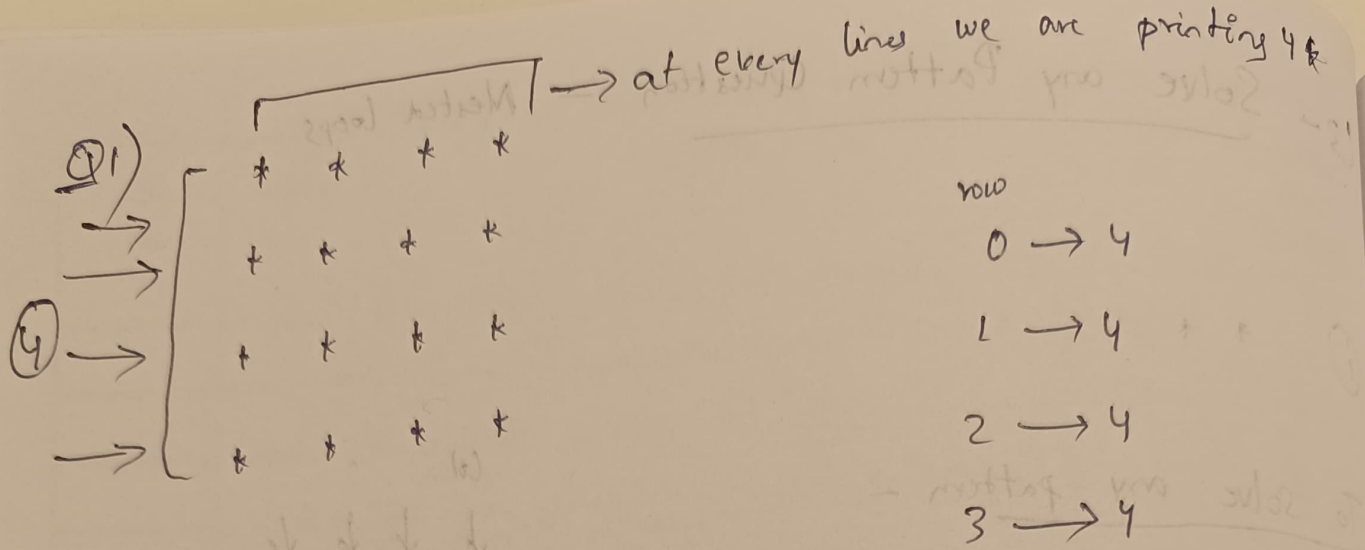 at every lines we are printing 4 *
Q1)
* * * *
* * * *
* * * *
* * * *
4
row
0 → 4
1 → 4
2 → 4
3 → 4